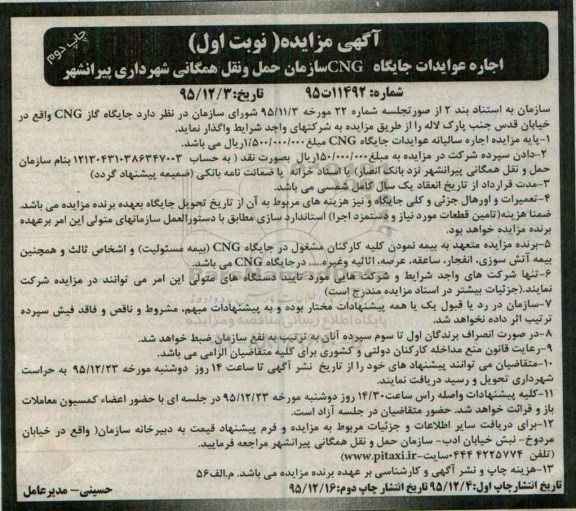 آگهی مزایده( نوبت اول)
چاپ دوم
اجاره عوایدات جایگاه CNGسازمان حمل ونقل همگانی شهرداری پیرانشهر
شماره: ۱۱۴۹۲ت۹۵ تاریخ:۹۵/۱۲/۳
سازمان به استناد بند ۲ از صورتجلسه شماره ۲۲ مورخه ۹۵/۱۱/۳ شورای سازمان در نظر دارد جایگاه گاز CNG واقع در
خیابان قدس جنب پارک لاله را از طریق مزایده به شرکتهای واجد شرایط واگذار نماید.
۱-پایه مزایده اجاره سالیانه عوایدات جایگاه CNG مبلغ ۱/۵۰۰/۰۰۰/۰۰۰ریال می باشد.
۲-دادن سپرده شرکت در مزایده به مبلغ۱۵۰/۰۰۰/۰۰۰ریال بصورت نقد ( به حساب ۱۲۱۳۰۴۳۱۰۳۸۶۳۴۷۰۰۳ بنام سازمان
حمل و نقل همگانی پیرانشهر نزد بانک انصار) یا اسناد خزانه یا ضمانت نامه بانکی (ضمیمه پیشنهاد گردد)
۳-مدت قرارداد از تاریخ انعقاد یک سال کامل شمسی می باشد.
۴-تعمیرات و اورهال جزئی و کلی جایگاه و نیز هزینه های مربوط به آن از تاریخ تحویل جایگاه بعهده برنده مزایده می باشد.
ضمنا هزینه(تامین قطعات مورد نیاز و دستمزد اجرا) استاندارد سازی مطابق با دستورالعمل سازمانهای متولی این امر برعهده
برنده مزایده خواهد بود.
۵-برنده مزایده متعهد به بیمه نمودن کلیه کارکنان مشغول در جایگاه CNG (بیمه مسئولیت) و اشخاص ثالث و همچنین
بیمه آتش سوزی، انفجار، ساعقه، عرصه، اثاثیه وغیره..... درجایگاه CNG می باشد.
۶-تنها شرکت های واجد شرایط و شرکت هایی مورد تایید دستگاه های متولی این امر می توانند در مزایده شرکت
نمایند.(جزئیات بیشتر در اسناد مزایده مندرج است)
۷-سازمان در رد یا قبول یک یا همه پیشنهادات مختار بوده و به پیشنهادات مبهم، مشروط و ناقص و فاقد فیش سپرده
ترتیب اثر داده نخواهد شد.
۸-در صورت انصراف برندگان اول تا سوم سپرده آنان به ترتیب به نفع سازمان ضبط خواهد شد.
۹-رعایت قانون منع مداخله کارکنان دولتی و کشوری برای کلیه متقاضیان الزامی می باشد.
۱۰-متقاضیان می توانند پیشنهاد های خود را از تاریخ نشر آگهی تا ساعت ۱۴ روز دوشنبه مورخه ۹۵/۱۲/۲۳ به حراست
شهرداری تحویل و رسید دریافت نمایند.
۱۱-کلیه پیشنهادات واصله راس ساعت۱۴/۳۰ روز دوشنبه مورخه ۹۵/۱۲/۲۳ در جلسه ای با حضور اعضاء کمسیون معاملات
باز و قرائت خواهد شد. حضور متقاضیان در جلسه آزاد است.
۱۲-برای دریافت سایر اطلاعات و جزئیات مربوط به مزایده و فرم پیشنهاد قیمت به دبیرخانه سازمان( واقع در خیابان
مردوخ- نبش خیابان ادب- سازمان حمل و نقل همگانی پیرانشهر مراجعه فرمایید.
(تلفن ۰۴۴۴۴۲۲۵۷۷۴سایت-www.pitaxi.ir)
۱۳-هزینه چاپ و نشر آگهی و کارشناسی بر عهده برنده مزایده می باشد. م.الف۵۶
تاریخ انتشارچاپ اول:۹۵/۱۲/۴ تاریخ انتشار چاپ دوم:۹۵/۱۲/۱۶ حسینی- مدیرعامل